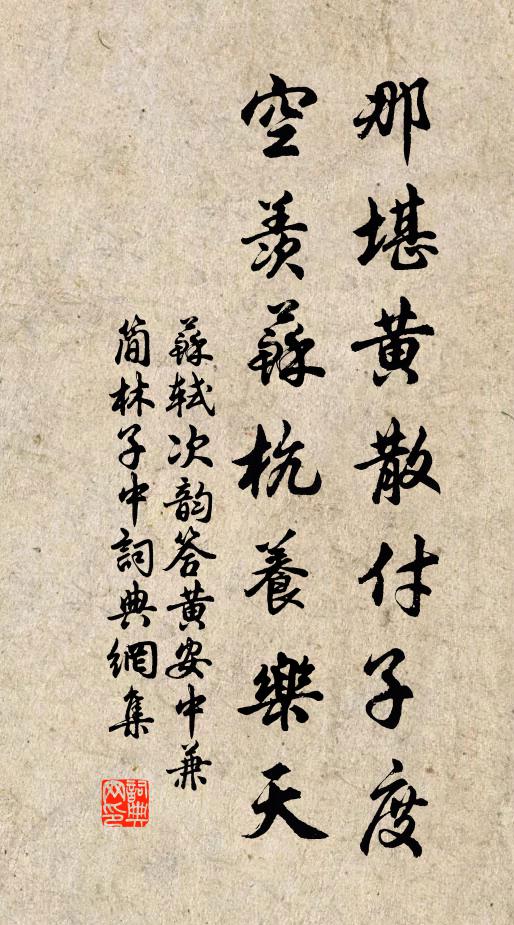 那堪黄散付子度
空羨蘇杭養樂天
蘇軾次韵答黄安中兼
簡林子中詞典網集
詞典
网印